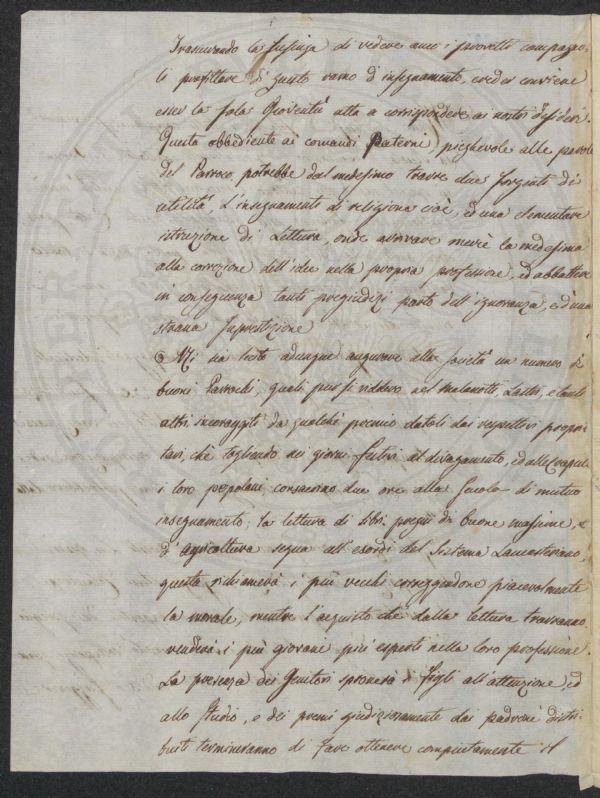 Trascurando la lusinga di vedere anco i provetti campagno-
li profittare di questo ramo d'insegnamento, creder conviene
esser la sola Gioventù atta a corrispondere ai nostri desideri.
Questa obbediente ai comandi Paterni, pieghevole alle parole
del Parroco, potrebbe dal medesimo trarre due sorgenti di
utilità, L'insegnamento di religione cioè, ed una elementare
istruzione di Lettura, onde arrivare mercè la medesima
alla correzione dell'idee nella propria professione, ed abbattere
in conseguenza tanti pregiudizi parto dell'ignoranza, e d'una
strana superstizione
Mi sia lecito adunque augurare alla società un numero di
buoni Parrochi, quali pure si viddero nel Malenotti, Landi, e tanti
altri, incoraggiti da qualche premio datoli dai respettivi proprie-
tari, che togliendo nei giorni festivi al divagamento, ed alle crapule
i loro popolani consacrino due ore alla Scuola di mutuo
insegnamento; la lettura di libri pregni di buone massime, e
d'agricoltura segua all'esordi del Sistema Lancasteriano,
questa richiamerà i più vecchi correggendone piacevolmente
la morale, mentre l'acquisto che dalla lettura trarranno
renderà i più giovani più esperti nella loro professione.
La presenza dei Genitori spronerà i figli all'attenzione, ed
allo studio, e dei premi giudiziosamente dai padroni distri-
buiti termineranno di fare ottenere compiutamente il